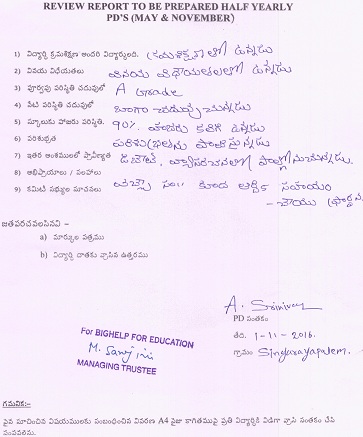 REVIEW REPORT TO BE PREPARED HALF YEARLY
PD'S (MAY & NOVEMBER)
1) విద్యార్థి క్రమశిక్షణ అందరి విద్యార్థులంది. క్రమశిక్షణలో ఉన్నాడు
2) వినయ విధేయతలు వినయ విధేయతలలో ఉన్నాడు
3) పూర్వపు పరిస్థితి చదువులో A Grade
4) నేటి పరిస్థితి చదువులో బాగా చదువుచున్నాడు
5) స్కూలుకు హాజరు పరిస్థితి. 90% హాజరు కలిగి ఉన్నాడు
6) పరిశుభ్రత పరిశుభ్రతను పాటిస్తున్నాడు
7) ఇతర అంశములలో ప్రావీణ్యత
8) అభిప్రాయాలు / సలహాలు
9) కమిటీ సభ్యుల సూచనలు ఆర్థిక సహాయం
జతపరచవలసినవి –
a) మార్కుల పత్రము
b) విద్యార్థి దాతకు వ్రాసిన ఉత్తరము
A. Srinivas
PD సంతకం
For BIGHELP FOR EDUCATION
తేది. 1-11-2016.
M. Sanjini
గ్రామం Singarayapalem.
MANAGING TRUSTEE
గమనిక:-
పైన సూచించిన విషయములకు సంబంధించిన వివరణ A4 సైజు కాగితముపై ప్రతి విద్యార్థికి విడిగా వ్రాసి సంతకం చేసి
పంపవలెను.